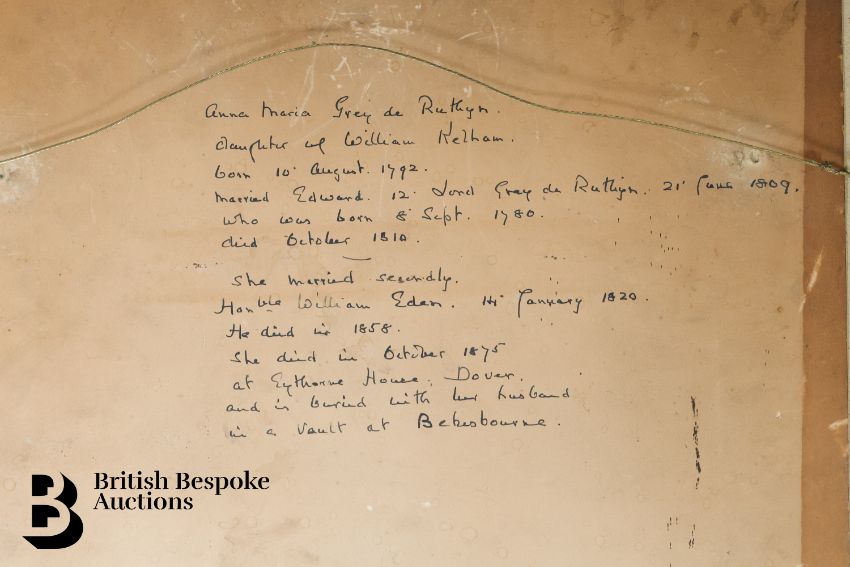 Anna Maria Grey de Ruthyn.
daughter of William Kelham.
born 10. August. 1792.
married Edward. 12. Lord Grey de Ruthyn. 21. June 1809.
who was born 8. Sept. 1780.
died October 1810.
She married secondly.
Honble William Eden. 14. January 1820.
He died in 1858.
She died in October 1875
at Eythorne House. Dover.
and is buried with her husband
in a vault at Bekesbourne.
British Bespoke
Auctions